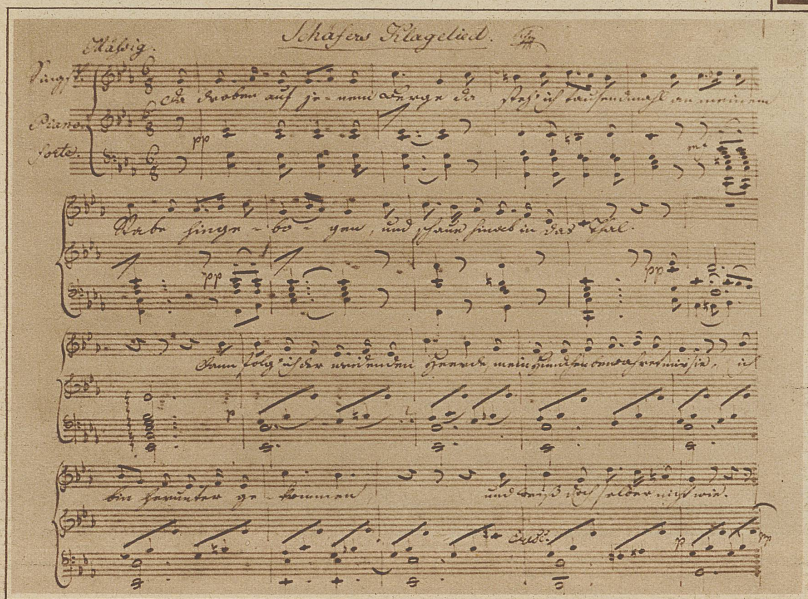 Schäfers Klagelied.
Mässig.
Singst.
Da droben auf je-nem Berge da steh ich tausendmahl an meinem
Piano
forte.
pp
Stabe hinge - bo - gen, und schaue hinab in das Thal.
pp pp
Dann folg ich der weidenden Heerde mein Hündchen bewahret mir sie, ich
p
bin herunter ge - kommen und weiß doch selber nicht wie.
p pp